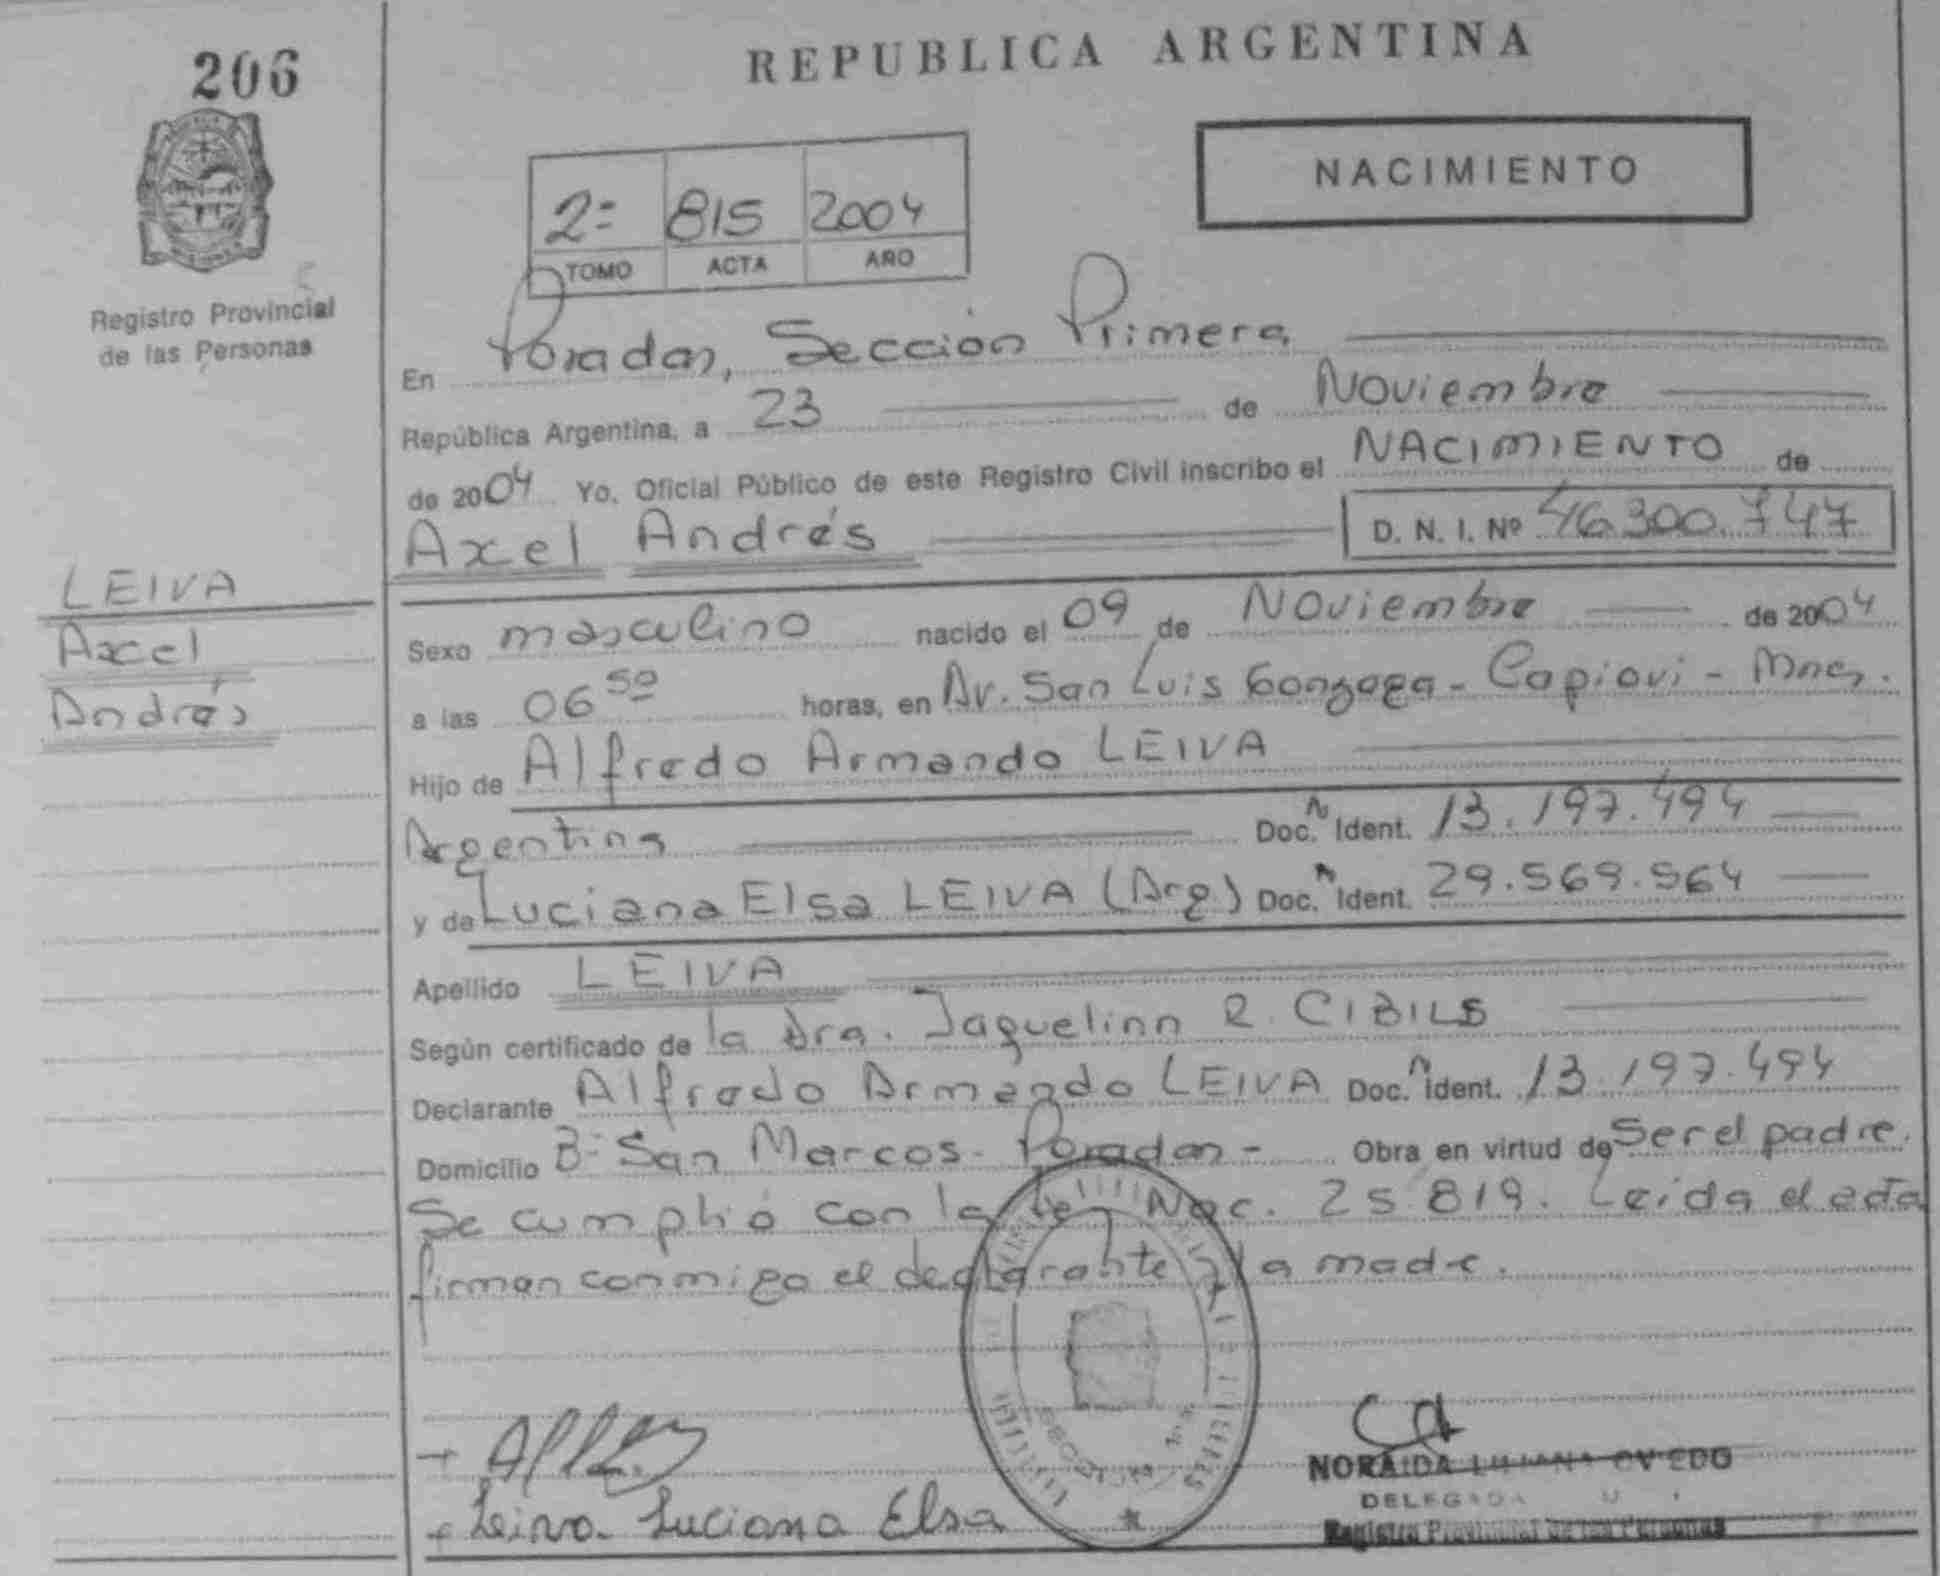 206
REPUBLICA ARGENTINA
NACIMIENTO
2= 815 2004
TOMO ACTA AÑO
Registro Provincial
de las Personas
En Posadas, Sección Primera
República Argentina, a 23 de Noviembre
de 2004 Yo, Oficial Público de este Registro Civil inscribo el NACIMIENTO de
Axel Andrés D. N. I. Nº 46.300.747
LEIVA
Axel
Andrés
Sexo masculino nacido el 09 de Noviembre de 2004
a las 06 50 horas, en Av. San Luis Gonzaga - Capiovi - Mnes.
Hijo de Alfredo Armando LEIVA
Argentina Doc. N Ident. 13.197.494
y de Luciana Elsa LEIVA (Arg) Doc. N Ident. 29.569.564
Apellido LEIVA
Según certificado de la Dra. Jaquelinn R. CIBILS
Declarante Alfredo Armando LEIVA Doc. N Ident. 13.197.494
Domicilio Bº San Marcos - Posadas - Obra en virtud de Ser el padre.
Se cumplió con la Ley Nac. 25.819. Leida el acta
firman conmigo el declarante y la madre.
Leiva Luciana Elsa
NORAIDA LILIANA OVIEDO
DELEGADA
Registro Provincial de las Personas